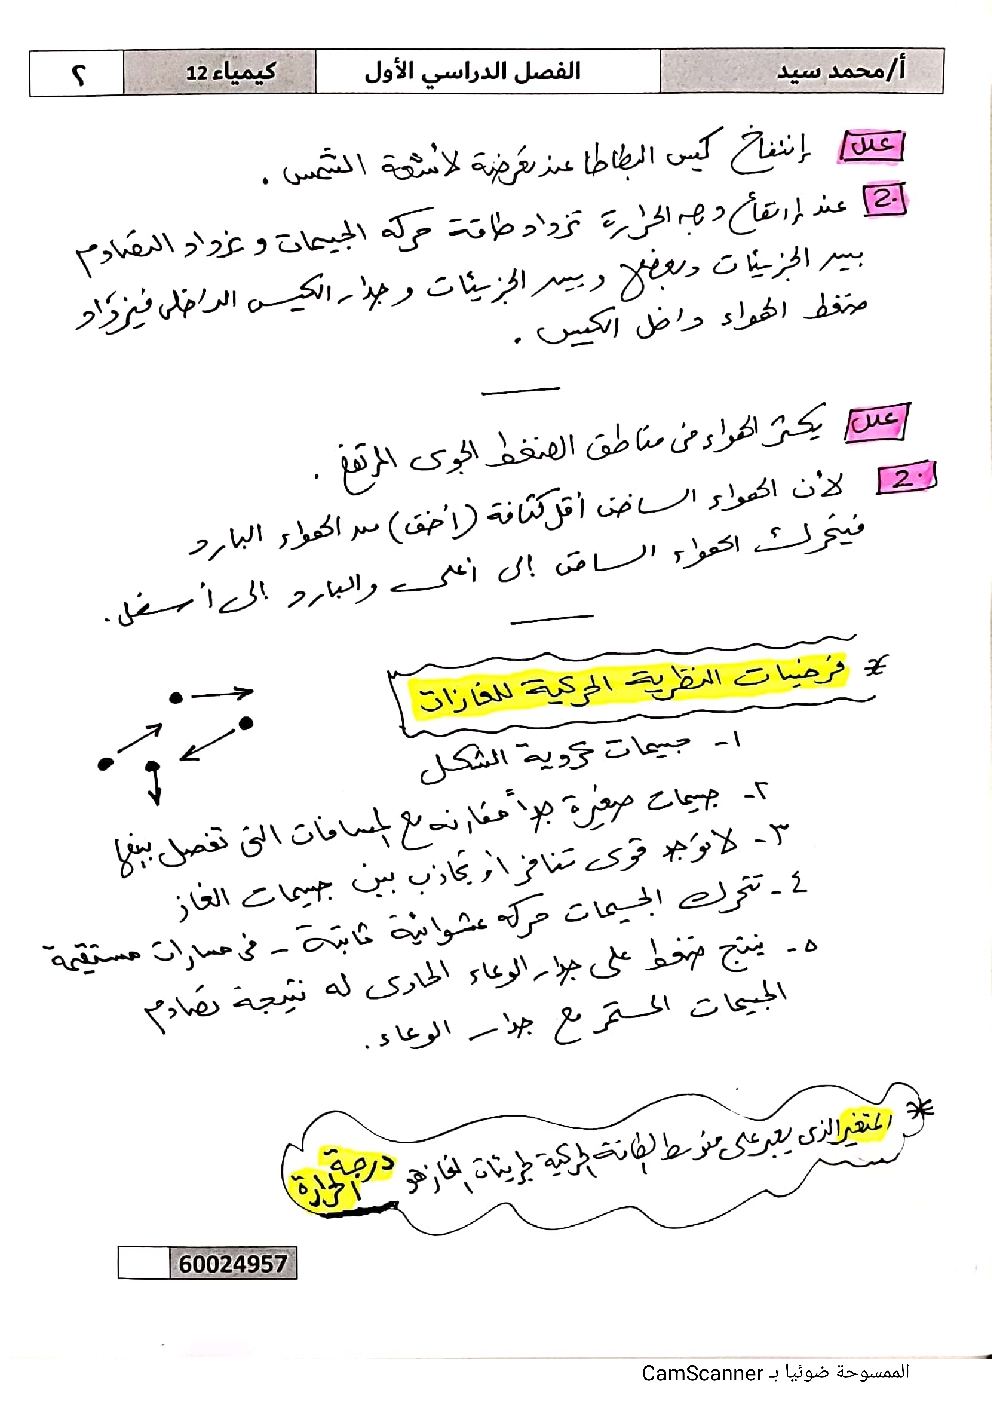 أ/محمد سيد
الفصل الدراسي الأول
كيمياء 12
٢
علل إنتفاخ كيس البطاطا عند تعرضة لأشعة الشمس .
عند إرتفاع درجه الحرارة تزداد طاقة حركه الجسيمات و تزداد التصادم
بين الجزيئات وبعضها و بين الجزيئات و جدار الكيس الداخلى فيزداد
ضغط الهواء داخل الكيس .
علل يكثر الهواء فى مناطق الضغط الجوى المرتفع .
لأن الهواء الساخن أقل كثافة (أخف) من الهواء البارد
فيتحرك الهواء الساخن إلى أعلى والبارد إلى أسفل .
* فرضيات النظرية الحركية للغازات
١- جسيمات كروية الشكل
٢- جسيمات صغيرة جداً مقارنه مع المسافات التى تفصل بينها
٣- لا توجد قوى تنافر أو تجاذب بين جسيمات الغاز
٤- تتحرك الجسيمات حركه عشوائية ثابتة - فى مسارات مستقيمة
٥- ينتج ضغط على جدار الوعاء الحاوى له نتيجة تصادم
الجسيمات المستمر مع جدار الوعاء .
* المتغير الذى يعبر على متوسط الطاقة الحركية لجزيئات الغاز هو درجة الحرارة
60024957
الممسوحة ضوئيا بـ CamScanner